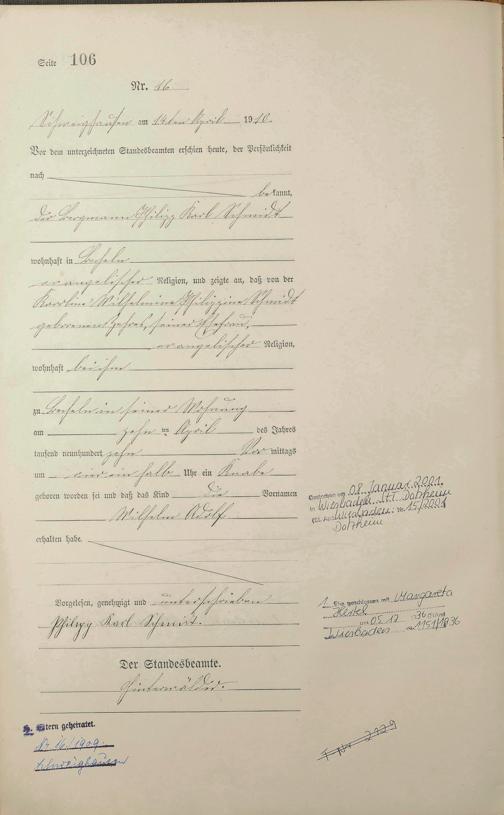 Seite 106
Nr. 16
Schweighausen am 14ten April 1910.
Vor dem unterzeichneten Standesbeamten erschien heute, der Persönlichkeit
nach
bekannt,
der Bergmann Philipp Karl Schmidt
wohnhaft in Becheln
evangelischer Religion, und zeigte an, daß von der
Karoline Wilhelmine Philippine Schmidt
geborenen seiner Ehefrau,
evangelischer Religion,
wohnhaft bei ihm
zu Becheln in seiner Wohnung
am zehnten April des Jahres
tausend neunhundert zehn Vormittags
um vier ein halb Uhr ein Knabe
geboren worden sei und daß das Kind die Vornamen
Wilhelm Adolf
erhalten habe.
Vorgelesen, genehmigt und unterschrieben
Philipp Karl Schmidt.
Der Standesbeamte.
Hinterwälder.
Eltern geheiratet.
Nr. 16/1909
Schweighausen
am 08. Januar 2001
in Wiesbaden, OT. Dotzheim
Wiesbaden- Nr. 15/2001
Dotzheim
1. Ehe geschlossen mit Margareta
Hertel
am 05.12.1936
Wiesbaden Nr. 1151/1936